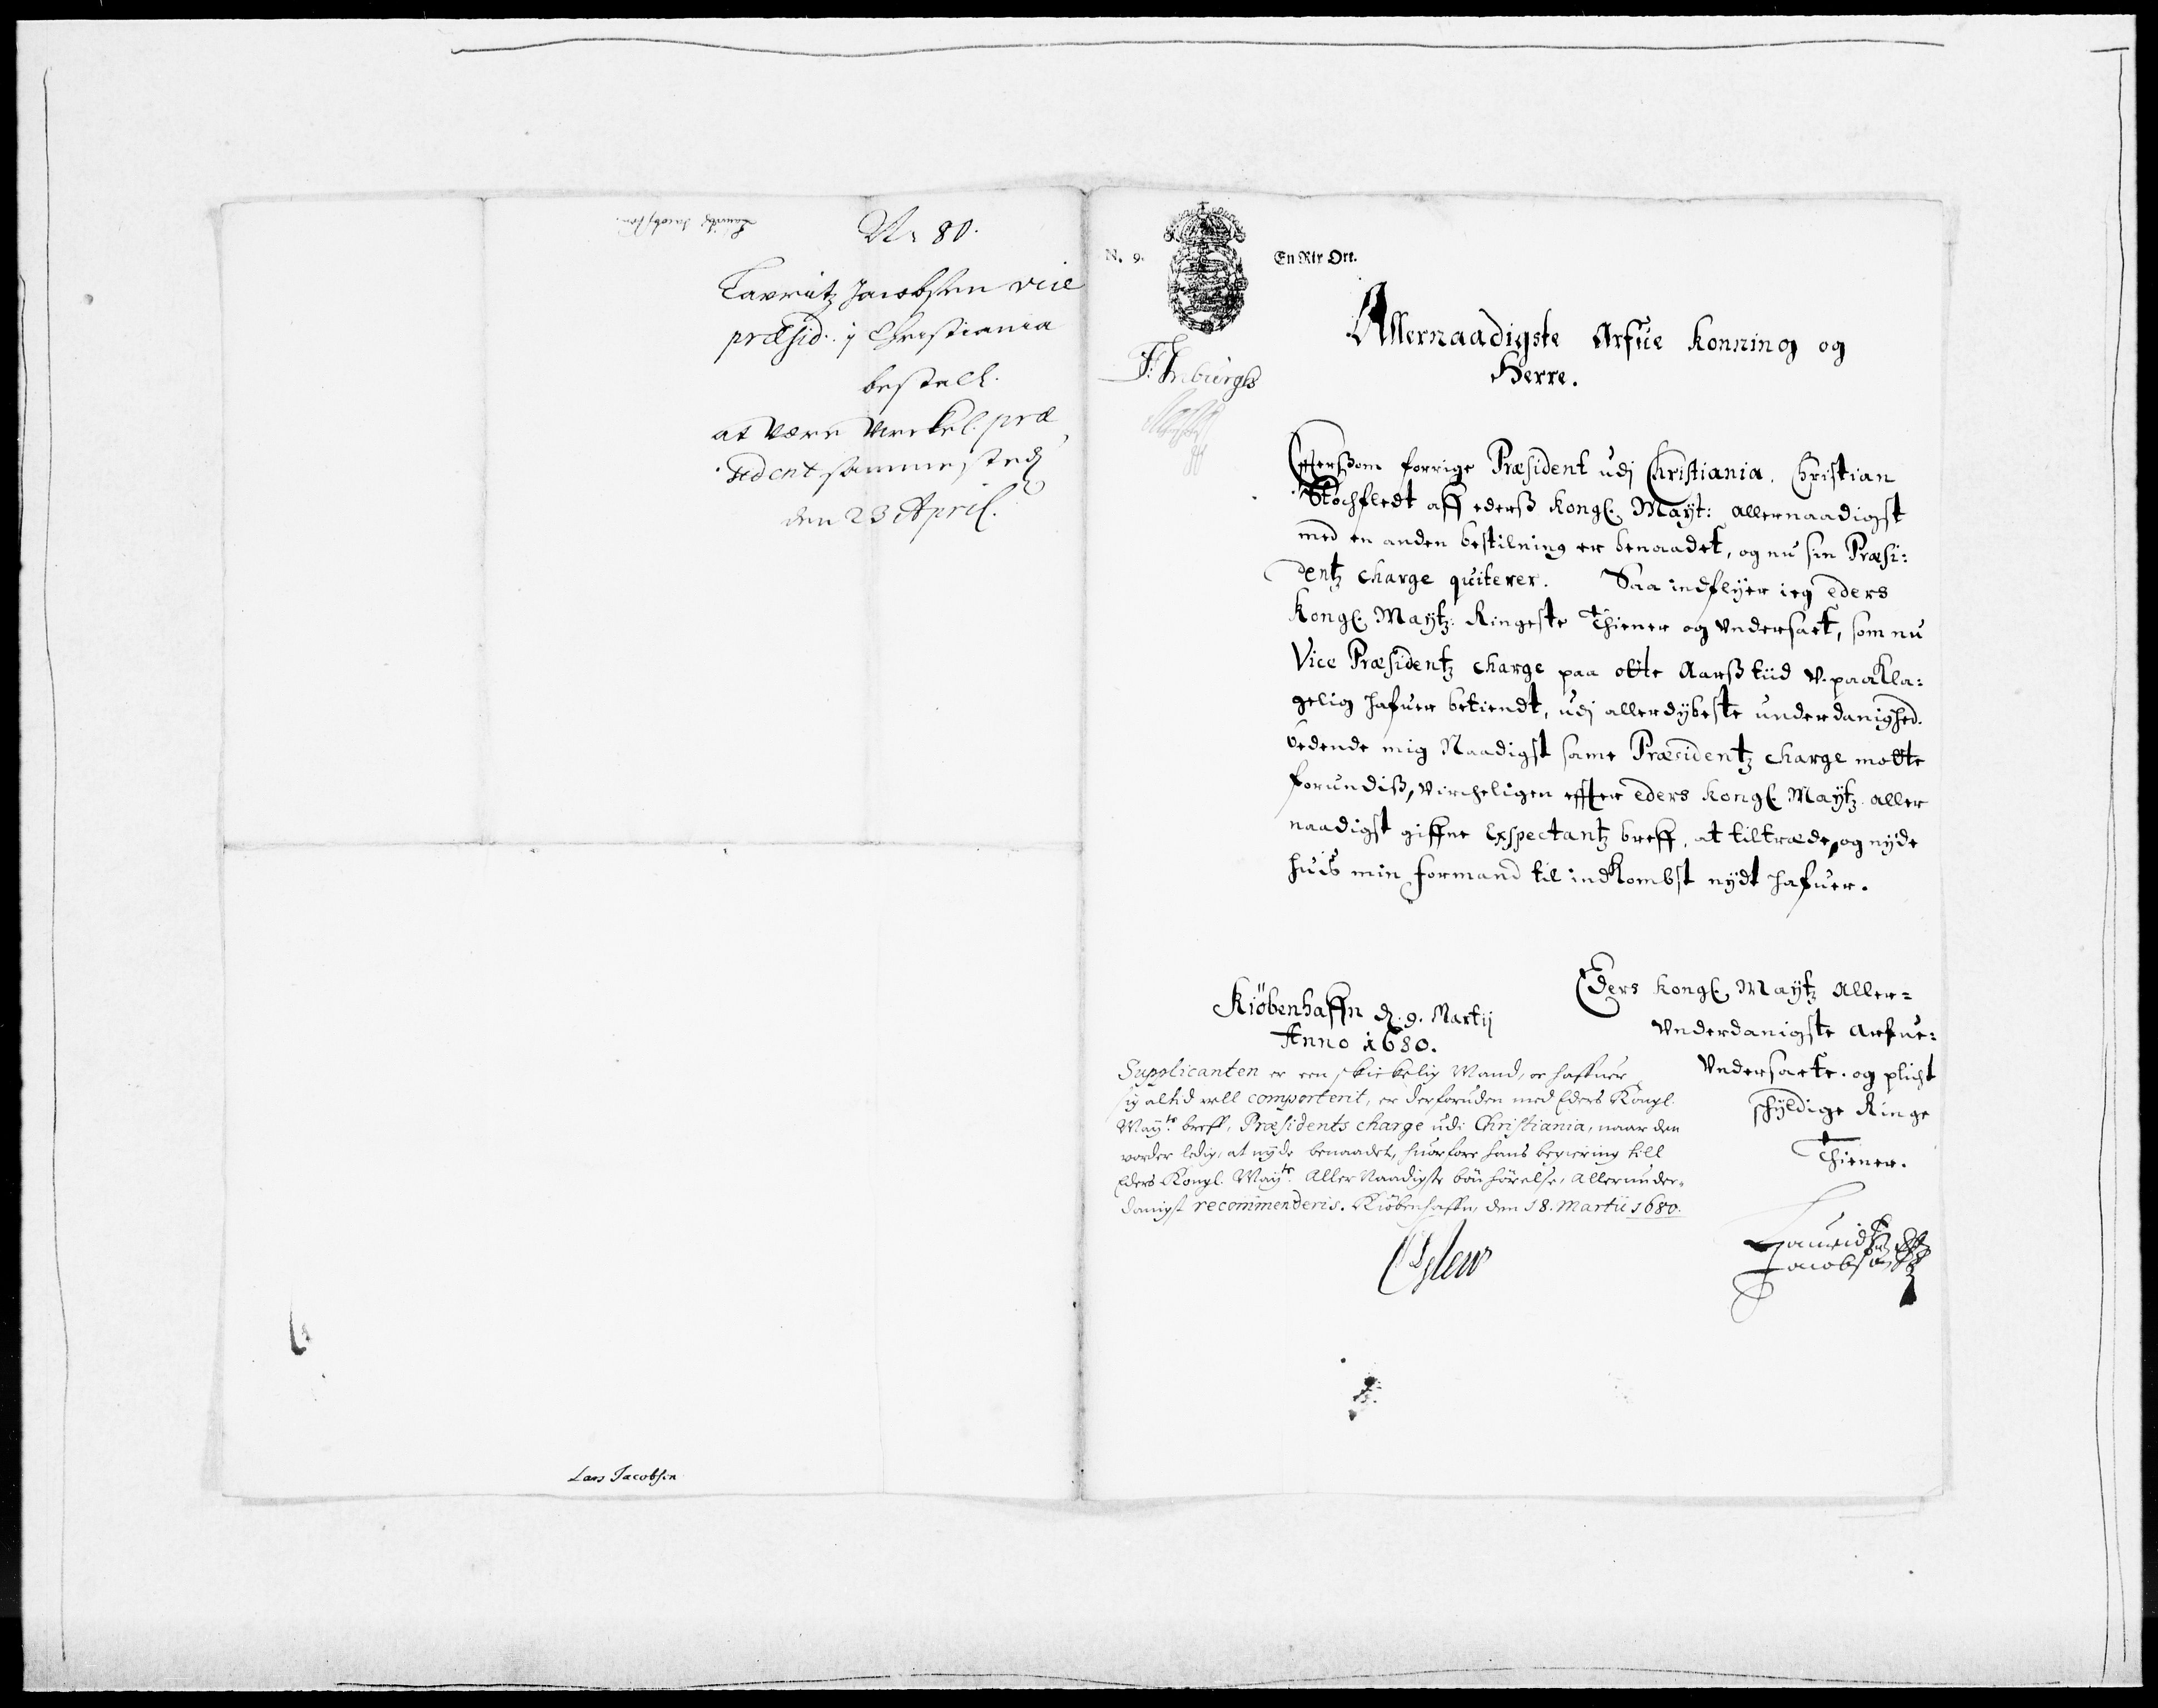 Lauritz Jacobsen
Nr 80.
Lavritz Jacobsen vice
præsid: i Christiania
bestall.
at være Verkel. præ
sident sammesteds
den 23 April.
Lars Jacobsen
N. 9.
En Rix Ort.
Allernaadigste Arfue Konning og
Herre.
Effterßom forrige Præsident udj Christiania, Christian
Stochfledt aff ederß Kongl. Mayt: allernaadigst
med en anden bestilning er benaadet, og nu sin Præsi:
dentz charge quiterer. Saa indflyer ieg eders
Kongl. Maytz. Ringeste Thiener og Undersaet, som nu
Vice Præsidentz charge paa otte Aarß tiid V-paakla:
gelig hafuer betiendt, udj allerdybeste underdanighed.
bedende mig Naadigst same Præsidentz charge motte
forundiß, Vircheligen effter eders Kongl. Maytz. aller
naadigst giffne Exspectantz breff, at tiltræde, og nyde
huis min formand til indkombst nydt hafuer.
Kiöbenhaffn d. 9. Martij
Anno 1680.
Eders Kongl. Maytz Aller=
Underdanigste Arfue:
Undersaete. og plicht
schyldige Ringe
Thiener.
Lauridtz
Jacobsøn
Supplicanten er een skickelig Mand, oc haffuer
sig altid vell comporterit, er derforuden med Eders Kongl.
Mayts. breff, Præsidents charge udi Christiania, naar den
vorder ledig, at nyde benaadet, huorfore hans begiering till
Eders Kongl. Mayts. Aller Naadigste bönhörelse, Allerunder=
danigst recommenderis. Kiöbenhaffn, den 18. Martii 1680.